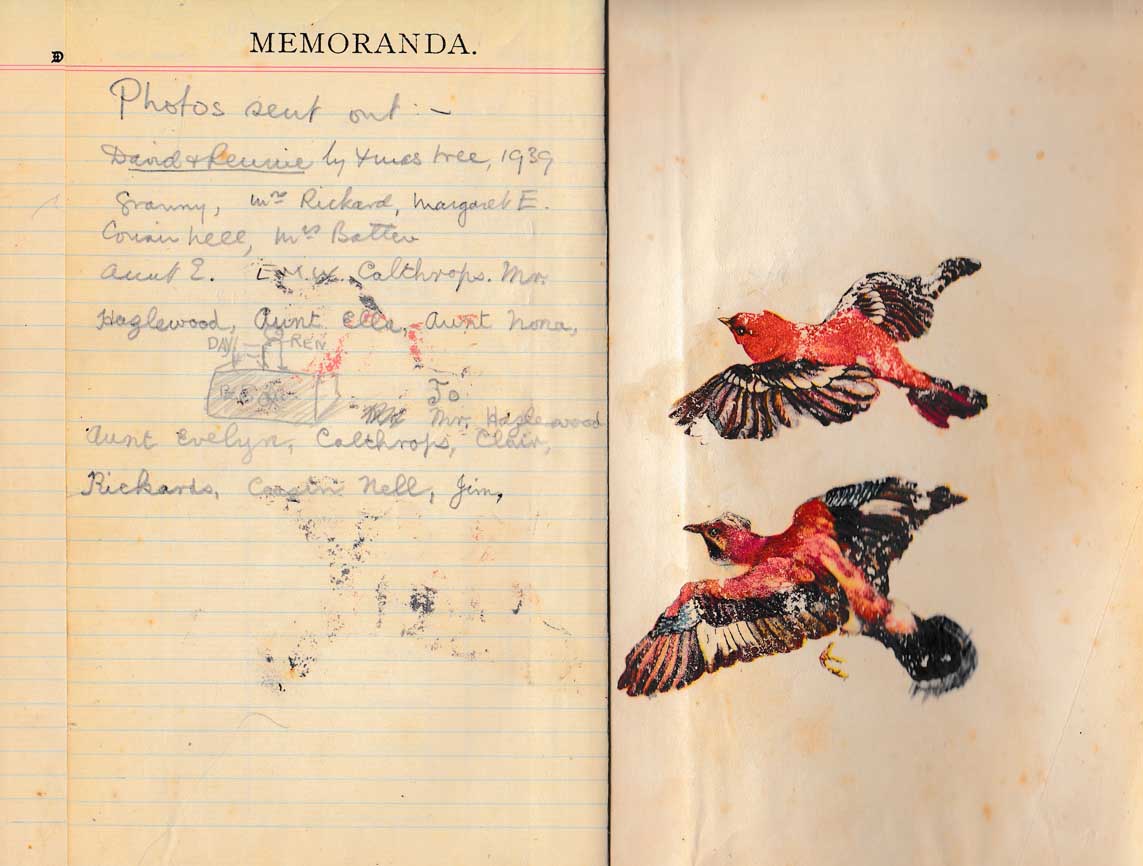 MEMORANDA.
D
Photos sent out :-
David & Rennie by Xmas tree, 1939
Granny, Mrs Rickard, Margaret E.
Cousin Nell, Mrs Batten
Aunt E. E.M.W. Calthrops. Mr.
Hazlewood, Aunt Ella, Aunt Nona,
DAV REN
To
Mr. Hazlewood
Aunt Evelyn, Calthrops, Clair,
Rickards, Cousin Nell, Jim,